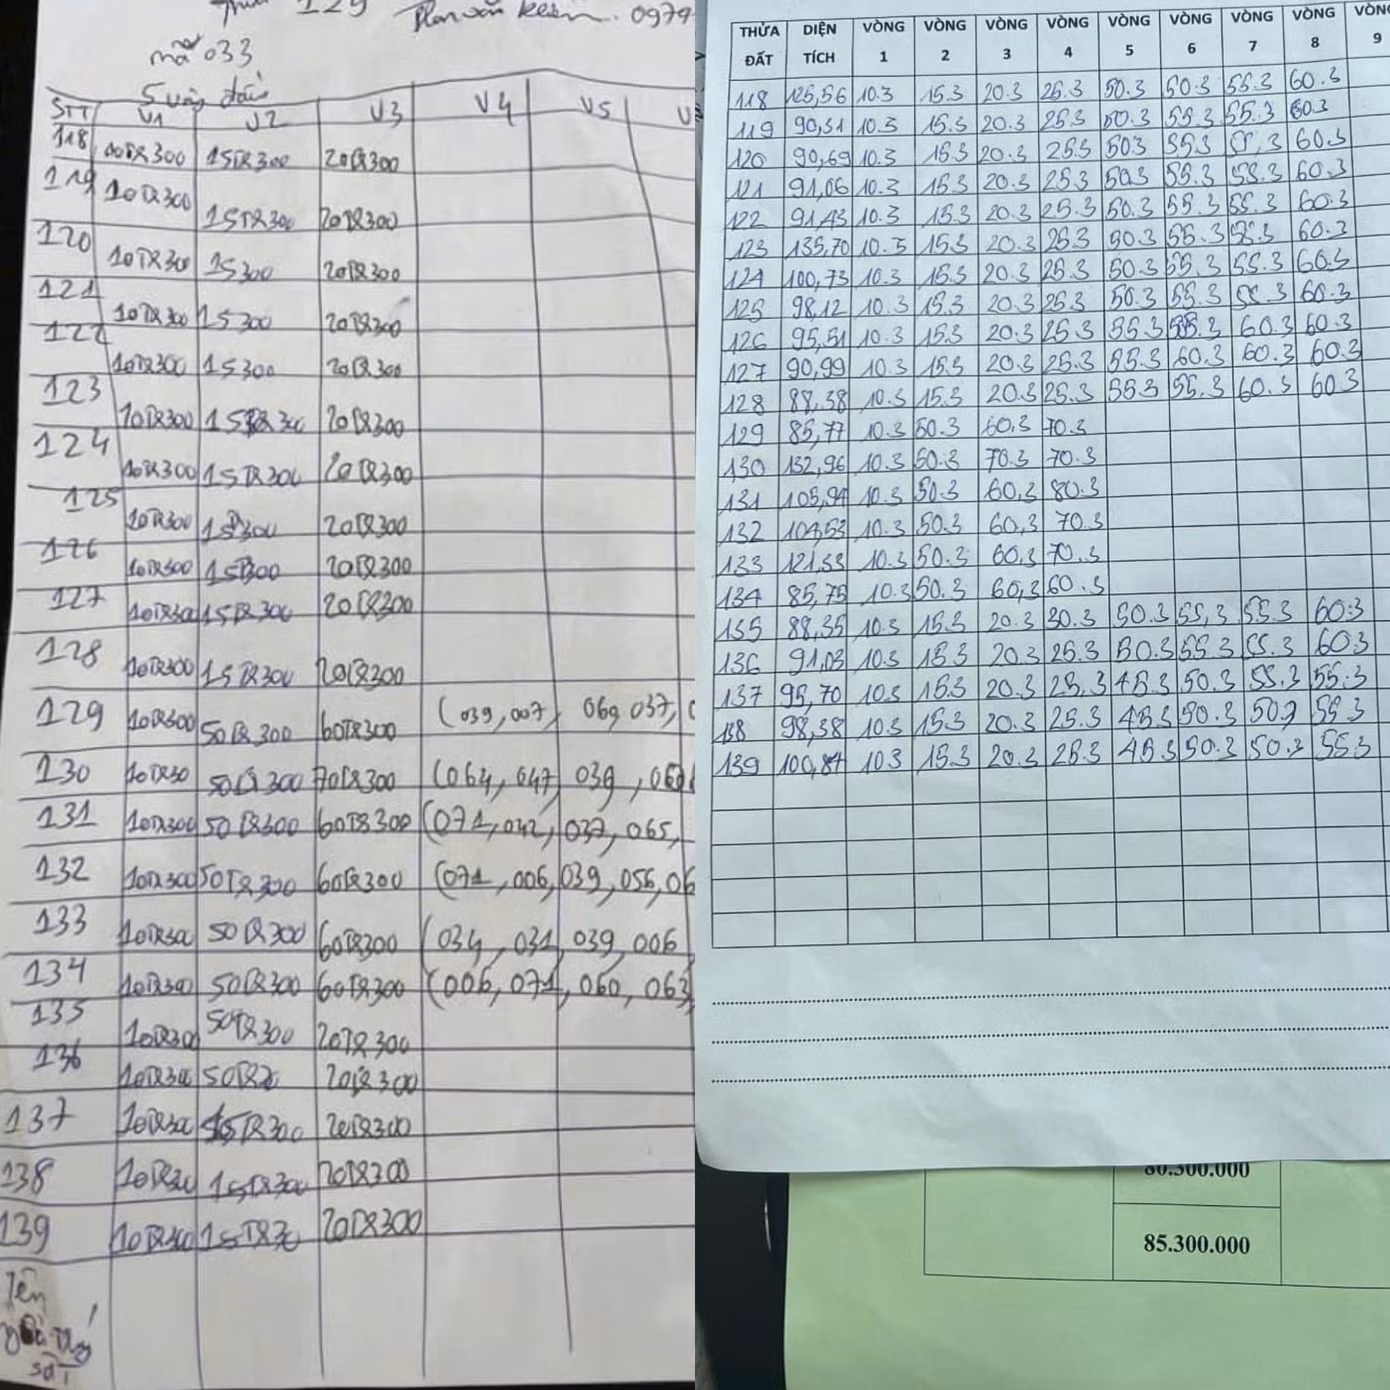 129 Phan văn Khiêm. 0979
mã 033
5 vòng đầu
STT V1 V2 V3 V4 V5
118 10TR300 15TR300 20TR300
119 10TR300 15TR300 20TR300
120 10TR300 15300 20TR300
121 10TR300 15300 20TR300
122 10TR300 15300 20TR300
123 10TR300 15TR300 20TR300
124 10TR300 15TR300 20TR300
125 10TR300 15TR300 20TR300
126 10TR300 15TR300 20TR300
127 10TR300 15TR300 20TR300
128 10TR300 15TR300 20TR300
129 10TR300 50TR300 60TR300 (039, 007, 069, 037,
130 10TR30 50TR300 70TR300 (064, 047, 039,
131 10TR300 50TR300 60TR300 (071, 042, 037, 065,
132 10TR300 50TR300 60TR300 (071, 006, 039, 056, 06
133 10TR300 50TR300 60TR300 (034, 031, 039, 006
134 10TR300 50TR300 60TR300 (006, 071, 060, 063
135 10TR300 50TR300 20TR300
136 10TR300 20TR300
137 10TR300 15TR300 20TR300
138 10TR300 15TR300 20TR300
139 10TR300 15TR30 20TR300
Tên
số
THỬA ĐẤT DIỆN TÍCH VÒNG 1 VÒNG 2 VÒNG 3 VÒNG 4 VÒNG 5 VÒNG 6 VÒNG 7 VÒNG 8 VÒNG 9
118 125,56 10.3 15.3 20.3 25.3 50.3 50.3 55.3 60.3
119 90,31 10.3 15.3 20.3 25.3 50.3 55.3 55.3 60.3
120 90,69 10.3 15.3 20.3 25.3 50.3 55.3 55.3 60.3
121 91,06 10.3 15.3 20.3 25.3 50.3 55.3 55.3 60.3
122 91,43 10.3 15.3 20.3 25.3 50.3 55.3 55.3 60.3
123 135,70 10.3 15.3 20.3 25.3 50.3 55.3 55.3 60.3
124 100,73 10.3 15.3 20.3 25.3 50.3 55.3 55.3 60.3
125 98,12 10.3 15.3 20.3 25.3 50.3 55.3 55.3 60.3
126 95,51 10.3 15.3 20.3 25.3 55.3 55.3 60.3 60.3
127 90,99 10.3 15.3 20.3 25.3 55.3 60.3 60.3 60.3
128 88,38 10.3 15.3 20.3 25.3 55.3 55.3 60.3 60.3
129 85,77 10.3 50.3 60.3 70.3
130 132,96 10.3 50.3 70.3 70.3
131 105,94 10.3 50.3 60,3 80.3
132 103,53 10.3 50.3 60,3 70.3
133 121,33 10.3 50.3 60,3 70.3
134 85,75 10.3 50.3 60,3 60.3
135 88,35 10.3 15.3 20.3 30.3 50.3 55,3 55.3 60.3
136 91,03 10.3 15.3 20.3 25.3 50.3 55.3 55.3 60.3
137 95,70 10.3 15.3 20.3 25.3 45.3 50.3 55.3 55.3
138 98,38 10.3 15.3 20.3 25.3 45.3 50.3 50.3 55.3
139 100,87 10.3 15.3 20.3 25.3 45.3 50.3 50.3 55.3
80.300.000
85.300.000